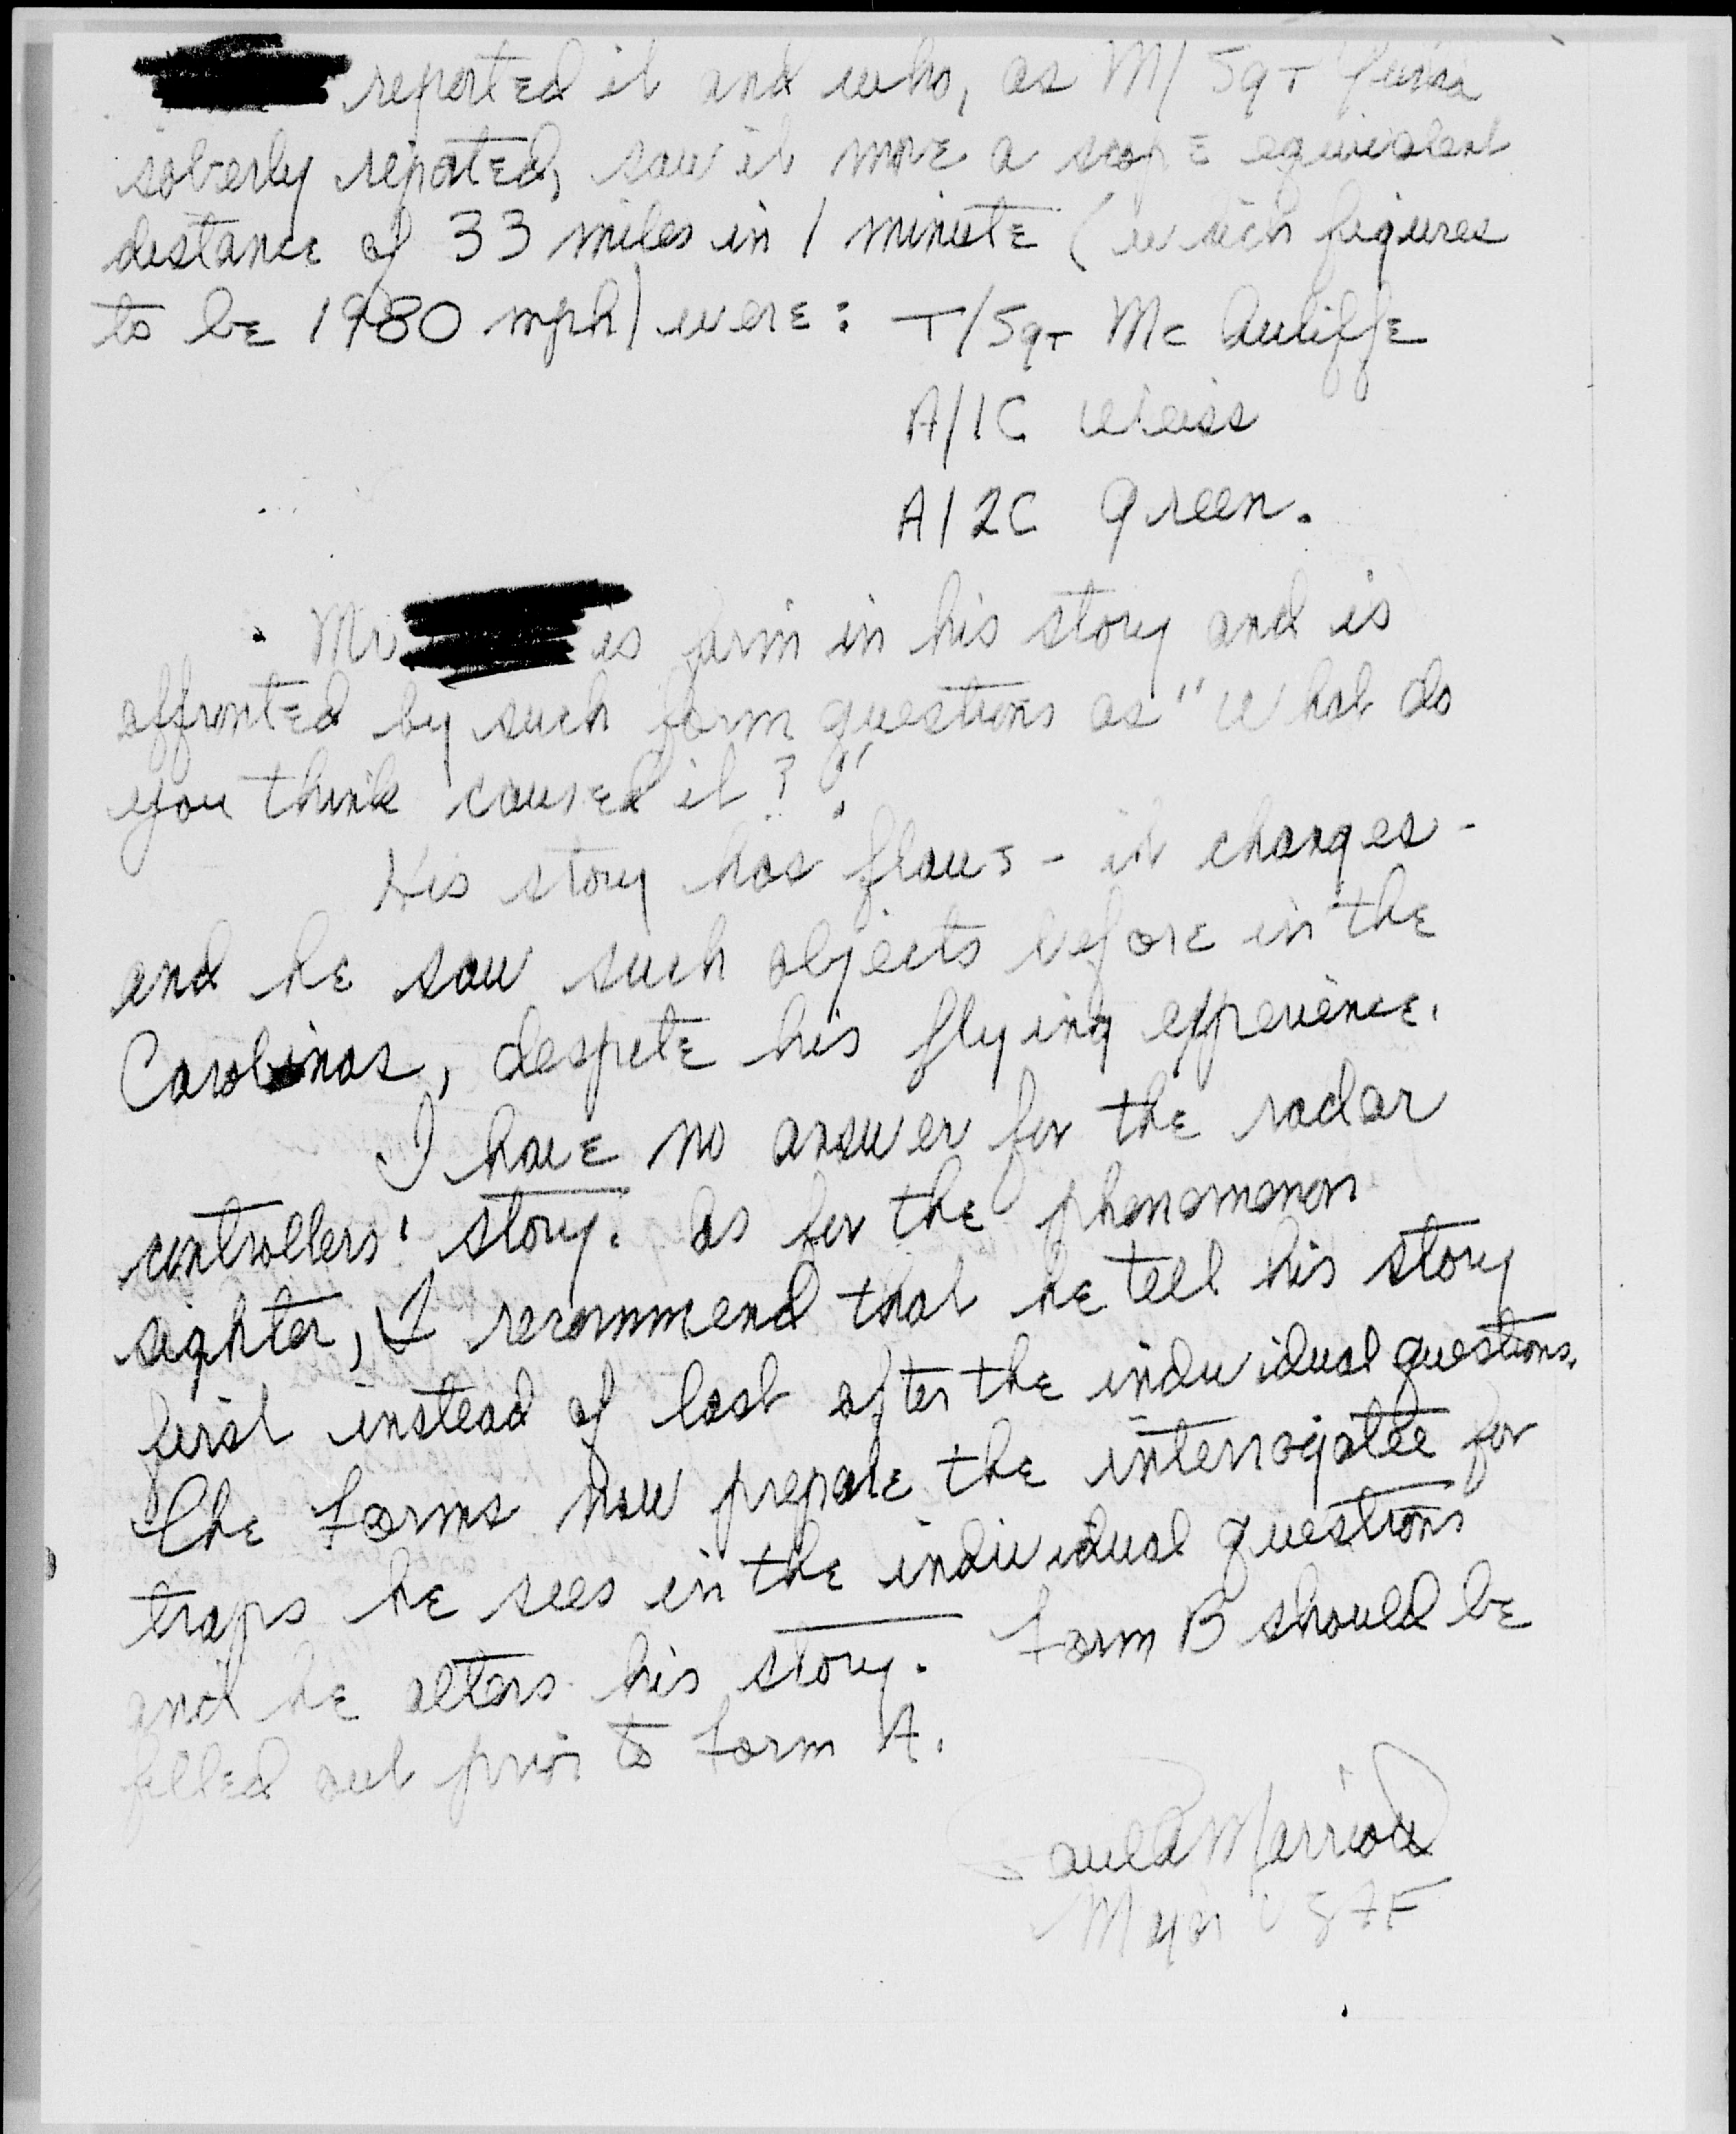 reported it and who, as M/Sgt
soberly repoted, saw it move a scope equivalent
distance of 33 miles in 1 minute (which figures
to be 1980 mph) were: T/Sgt McAuliffe
A/1C Weiss
A/2C Green.
Mr is firm in his story and is
affronted by such form questions as "What do
you think caused it?".
His story has flaws - it changes -
and he saw such objects before in the
Carolinas, despite his flying experience.
I have no answer for the radar
controllers' story. As for the phenomenon
sighter, I recommend that he tell his story
first instead of last after the individual questions.
The forms now prepare the interrogatee for
traps he sees in the individual questions
and he alters his story. Form B should be
filled out prior to Form A.
Major USAF